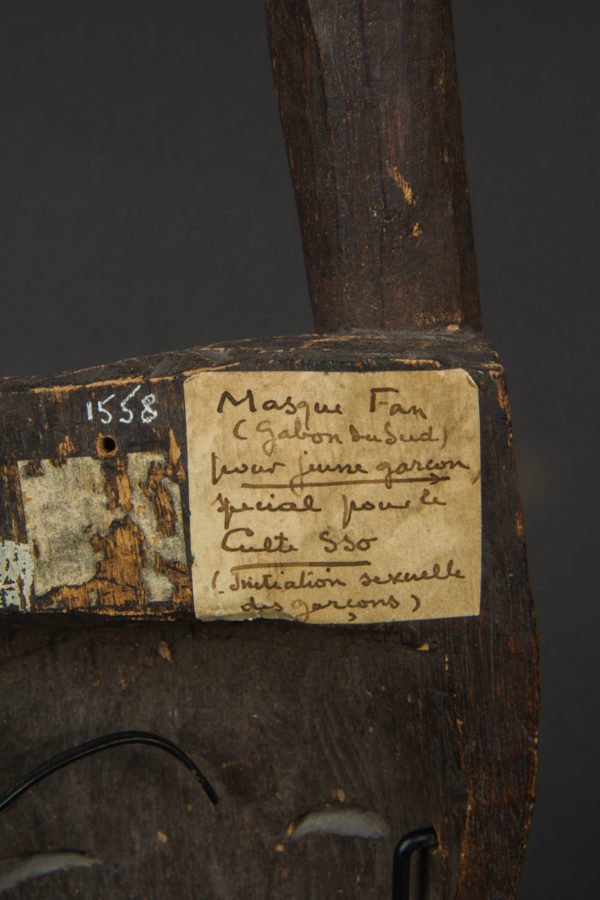 1558
Masque Fan
(Gabon du Sud)
pour jeune garçon,
spécial pour le
Culte Sso
(Initiation sexuelle
des garçons)